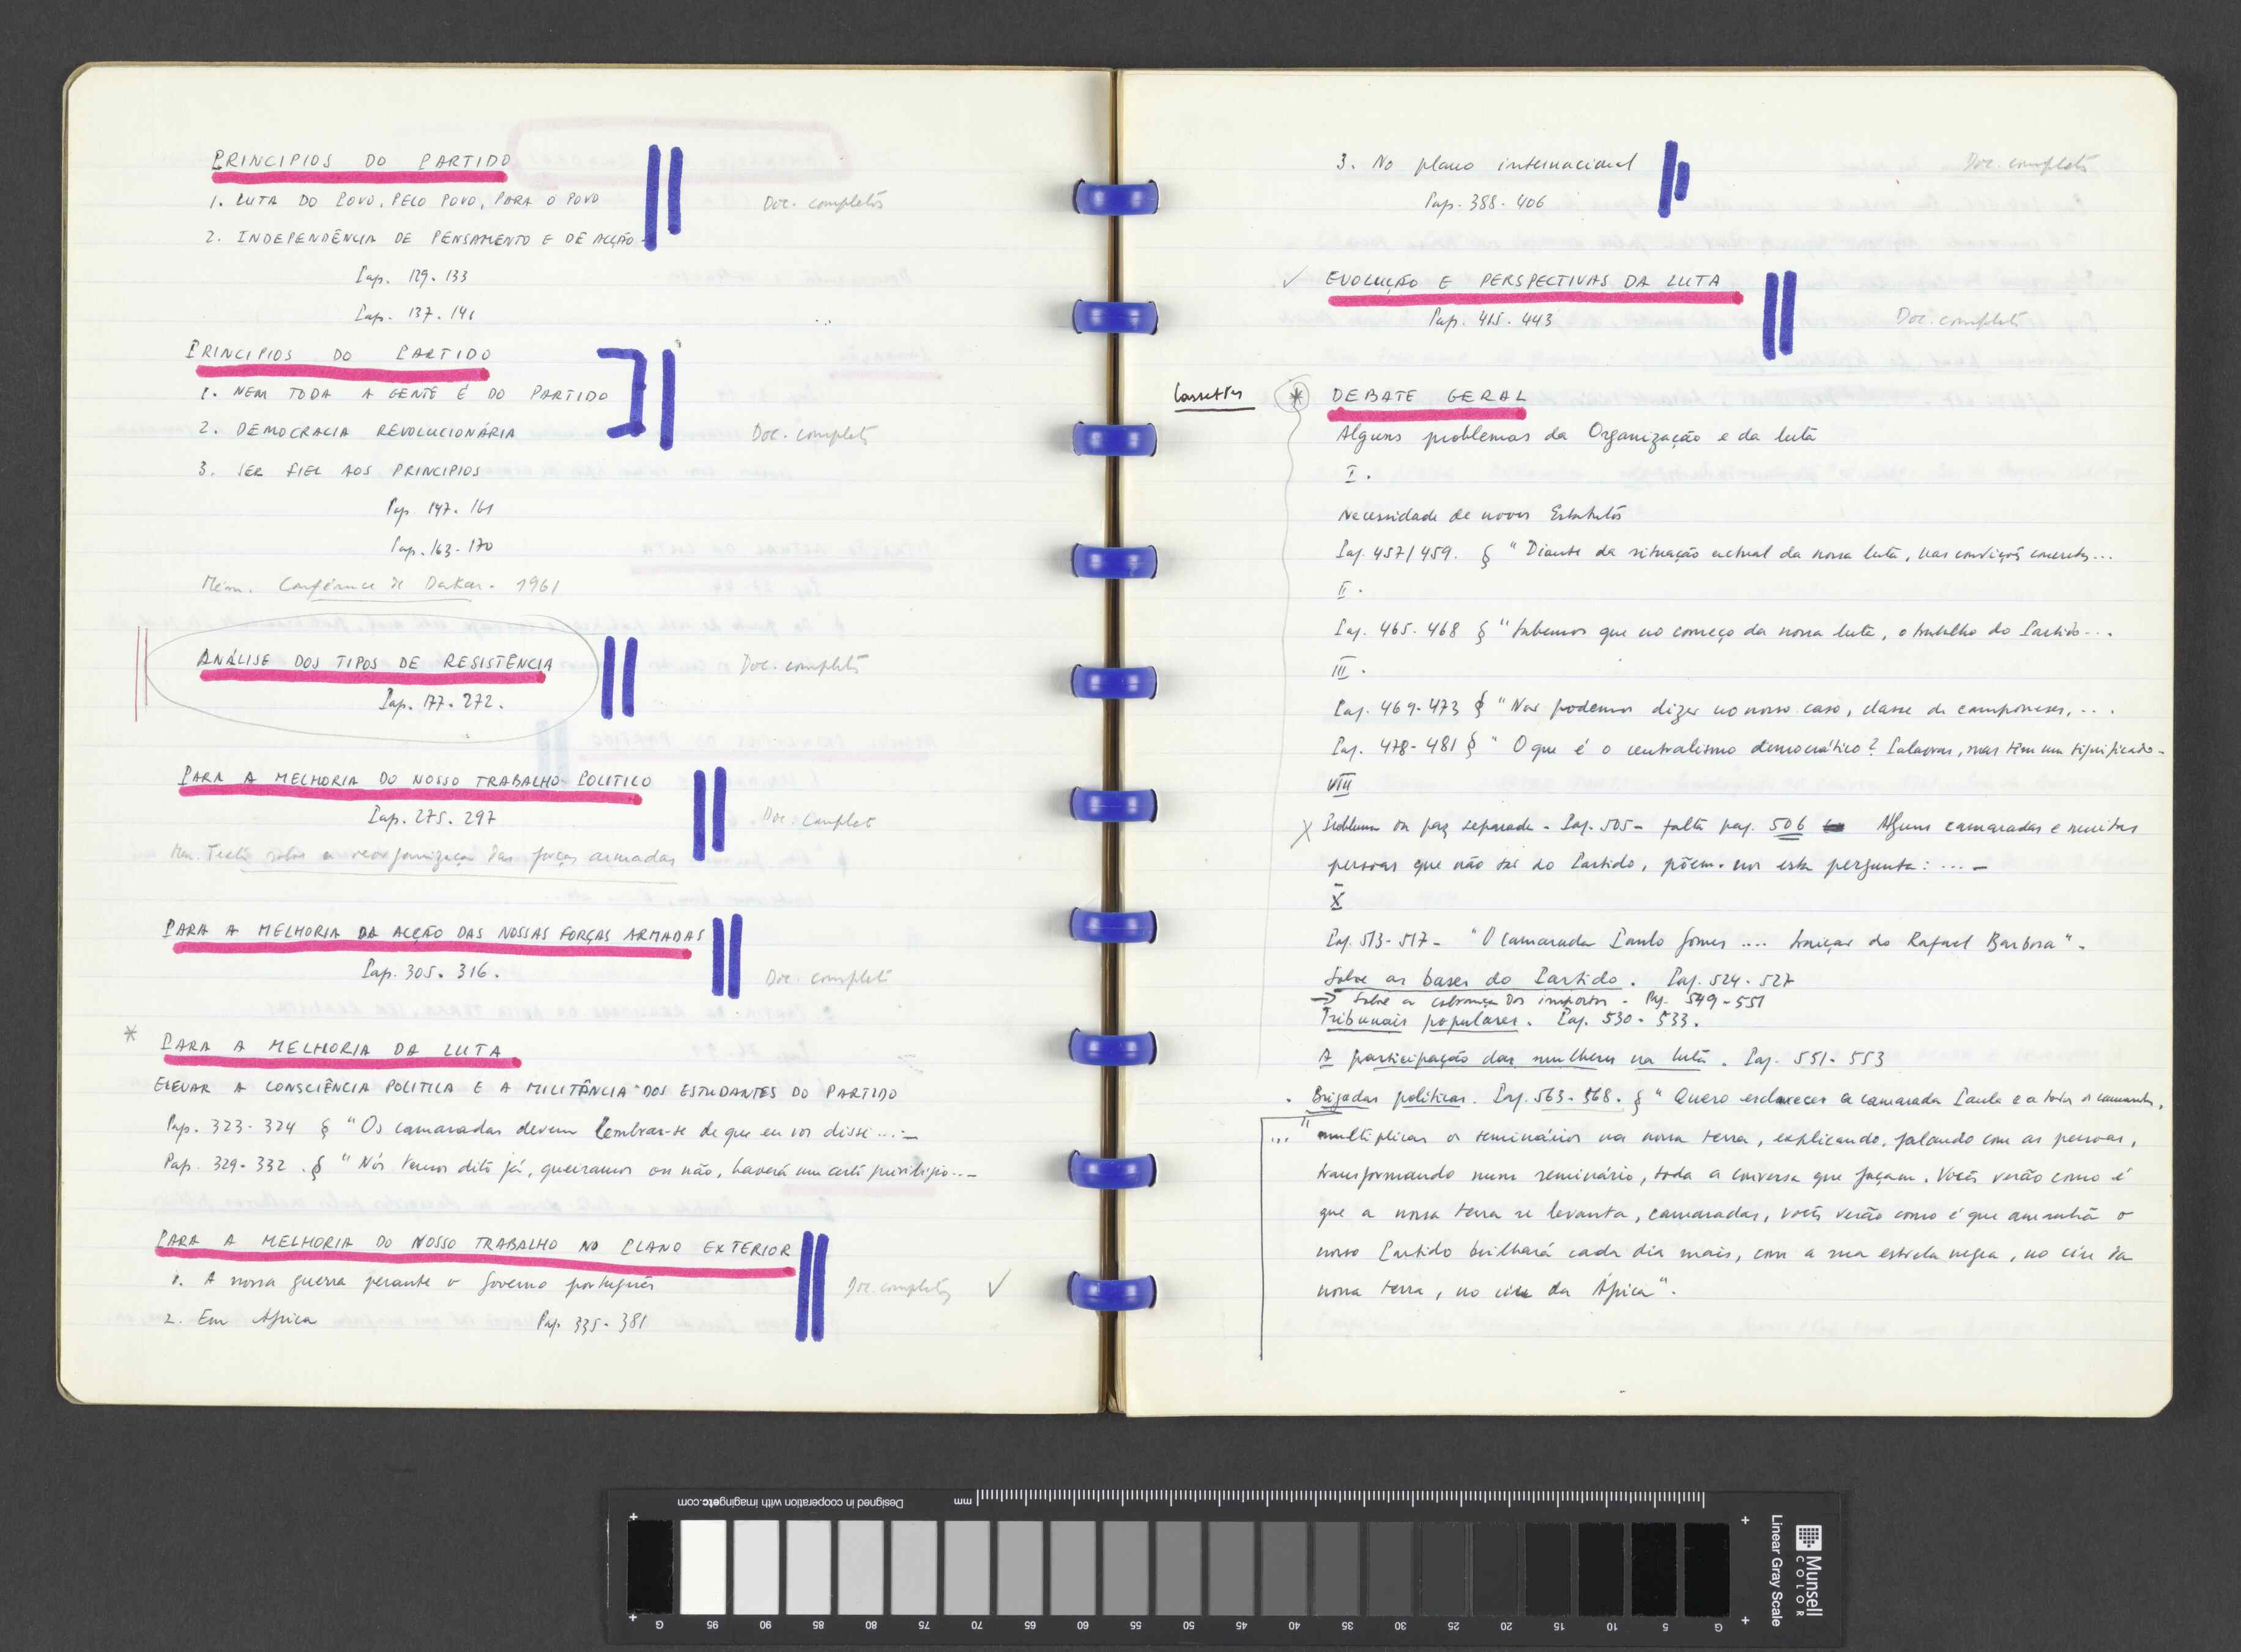 PRINCIPIOS DO PARTIDO
1. LUTA DO POVO, PELO POVO, PARA O POVO
Doc. completos
2. INDEPENDÊNCIA DE PENSAMENTO E DE ACÇÃO
Pag. 129-133
Pag. 137-141
PRINCIPIOS DO PARTIDO
1. NEM TODA A GENTE É DO PARTIDO
2. DEMOCRACIA REVOLUCIONÁRIA
Doc. completo
3. SER FIEL AOS PRINCIPIOS
Pag. 147-161
Pag. 163-170
Mém. Conférence de Dakar - 1961
ANÁLISE DOS TIPOS DE RESISTÊNCIA
Doc. completo
Pag. 177-272.
PARA A MELHORIA DO NOSSO TRABALHO POLITICO
Pag. 275-297
Doc. Complet
sobre a reorganização das forças armadas
PARA A MELHORIA DA ACÇÃO DAS NOSSAS FORÇAS ARMADAS
Pag. 305-316.
Doc. complet
* PARA A MELHORIA DA LUTA
ELEVAR A CONSCIÊNCIA POLITICA E A MILITÂNCIA DOS ESTUDANTES DO PARTIDO
Pag. 323-324 § "Os camaradas devem lembrar-se de que eu vos disse...-
Pag. 329-332. § "Nós temos dito já, queiramos ou não, haverá um certo privilégio...-
PARA A MELHORIA DO NOSSO TRABALHO NO PLANO EXTERIOR
1. A nossa guerra perante o Governo português
Doc. completos ✓
2. Em Africa Pag 335-381
3. No plano internacional
Doc. completo
Pag. 388-406
✓ EVOLUÇÃO E PERSPECTIVAS DA LUTA
Pag. 415-443
Doc. completo
Cassettes * DEBATE GERAL
Alguns problemas da Organização e da luta
I.
Necessidade de novos Estatutos
Pag. 457/459. § "Diante da situação actual da nossa luta, nas condições concretas...
II.
Pag. 465-468 § "Sabemos que no começo da nossa luta, o trabalho do Partido...
III.
Pag. 469-473 § "Nós podemos dizer no nosso caso, classe de camponeses, ...
Pag. 478-481 § "O que é o centralismo democrático? Palavras, mas têm um significado-
VIII
X Problema da paz separada - Pag. 505- falta pag. 506 Alguns camaradas e muitas
pessoas que não são do Partido, põem-nos esta pergunta: ... -
X
Pag. 513-517- "O camarada Paulo Gomes .... traição do Rafael Barbosa".
Sobre as bases do Partido. Pag. 524-527
→ Sobre a cobrança dos impostos - Pag. 549-551
Tribunais populares. Pag. 530-533.
A participação das mulheres na luta. Pag. 551-553
. Brigadas politicas. Pag. 563-568. § "Quero esclarecer a camarada Paula e a todos os camaradas,
..." multiplicar os seminários na nossa terra, explicando, falando com as pessoas,
transformando num seminário, toda a conversa que façam. Vocês verão como é
que a nossa terra se levanta, camaradas, vocês verão como é que amanhã o
nosso Partido brilhará cada dia mais, com a sua estrela negra, no céu da
nossa terra, no céu da África".
Designed in cooperation with imagingetc.com
mm
G 95 90 85 80 75 70 65 60 55 50 45 40 35 30 25 20 15 10 5 G
Munsell
COLOR
Linear Gray Scale